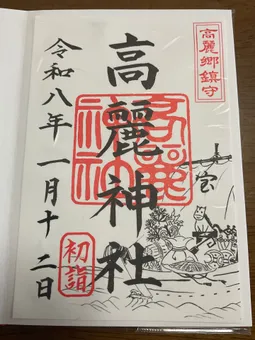 高麗郷鎮守
高麗神社
高麗神社
令和八年一月十二日
初詣